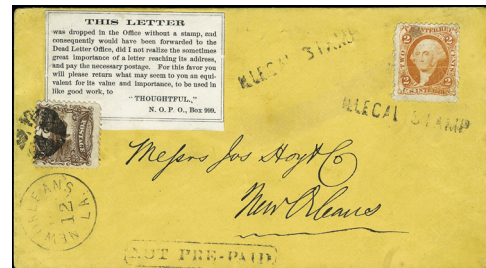 THIS LETTER
was dropped in the Office without a stamp, and
consequently would have been forwarded to the
Dead Letter Office, did I not realize the sometimes
great importance of a letter reaching its address,
and pay the necessary postage. For this favor you
will please return what may seem to you an equi-
valent for its value and importance, to be used in
like good work, to
"THOUGHTFUL.,"
N. O. P. O., Box 999.
ILLEGAL STAMP
ILLEGAL STAMP
2 2
Messrs Jos Hoyt & Co
New Orleans
NEW ORLEANS LA.
12
NOT PRE-PAID